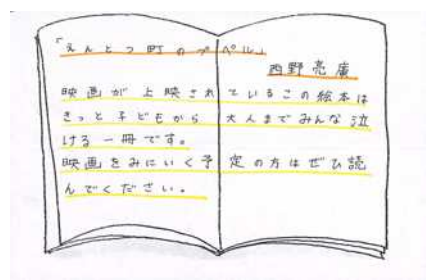 「えんとつ町のプペル」
西野亮廣
映画が上映されているこの絵本は
きっと子どもから大人までみんな泣
ける一冊です。
映画をみにいく予定の方はぜひ読
んでください。